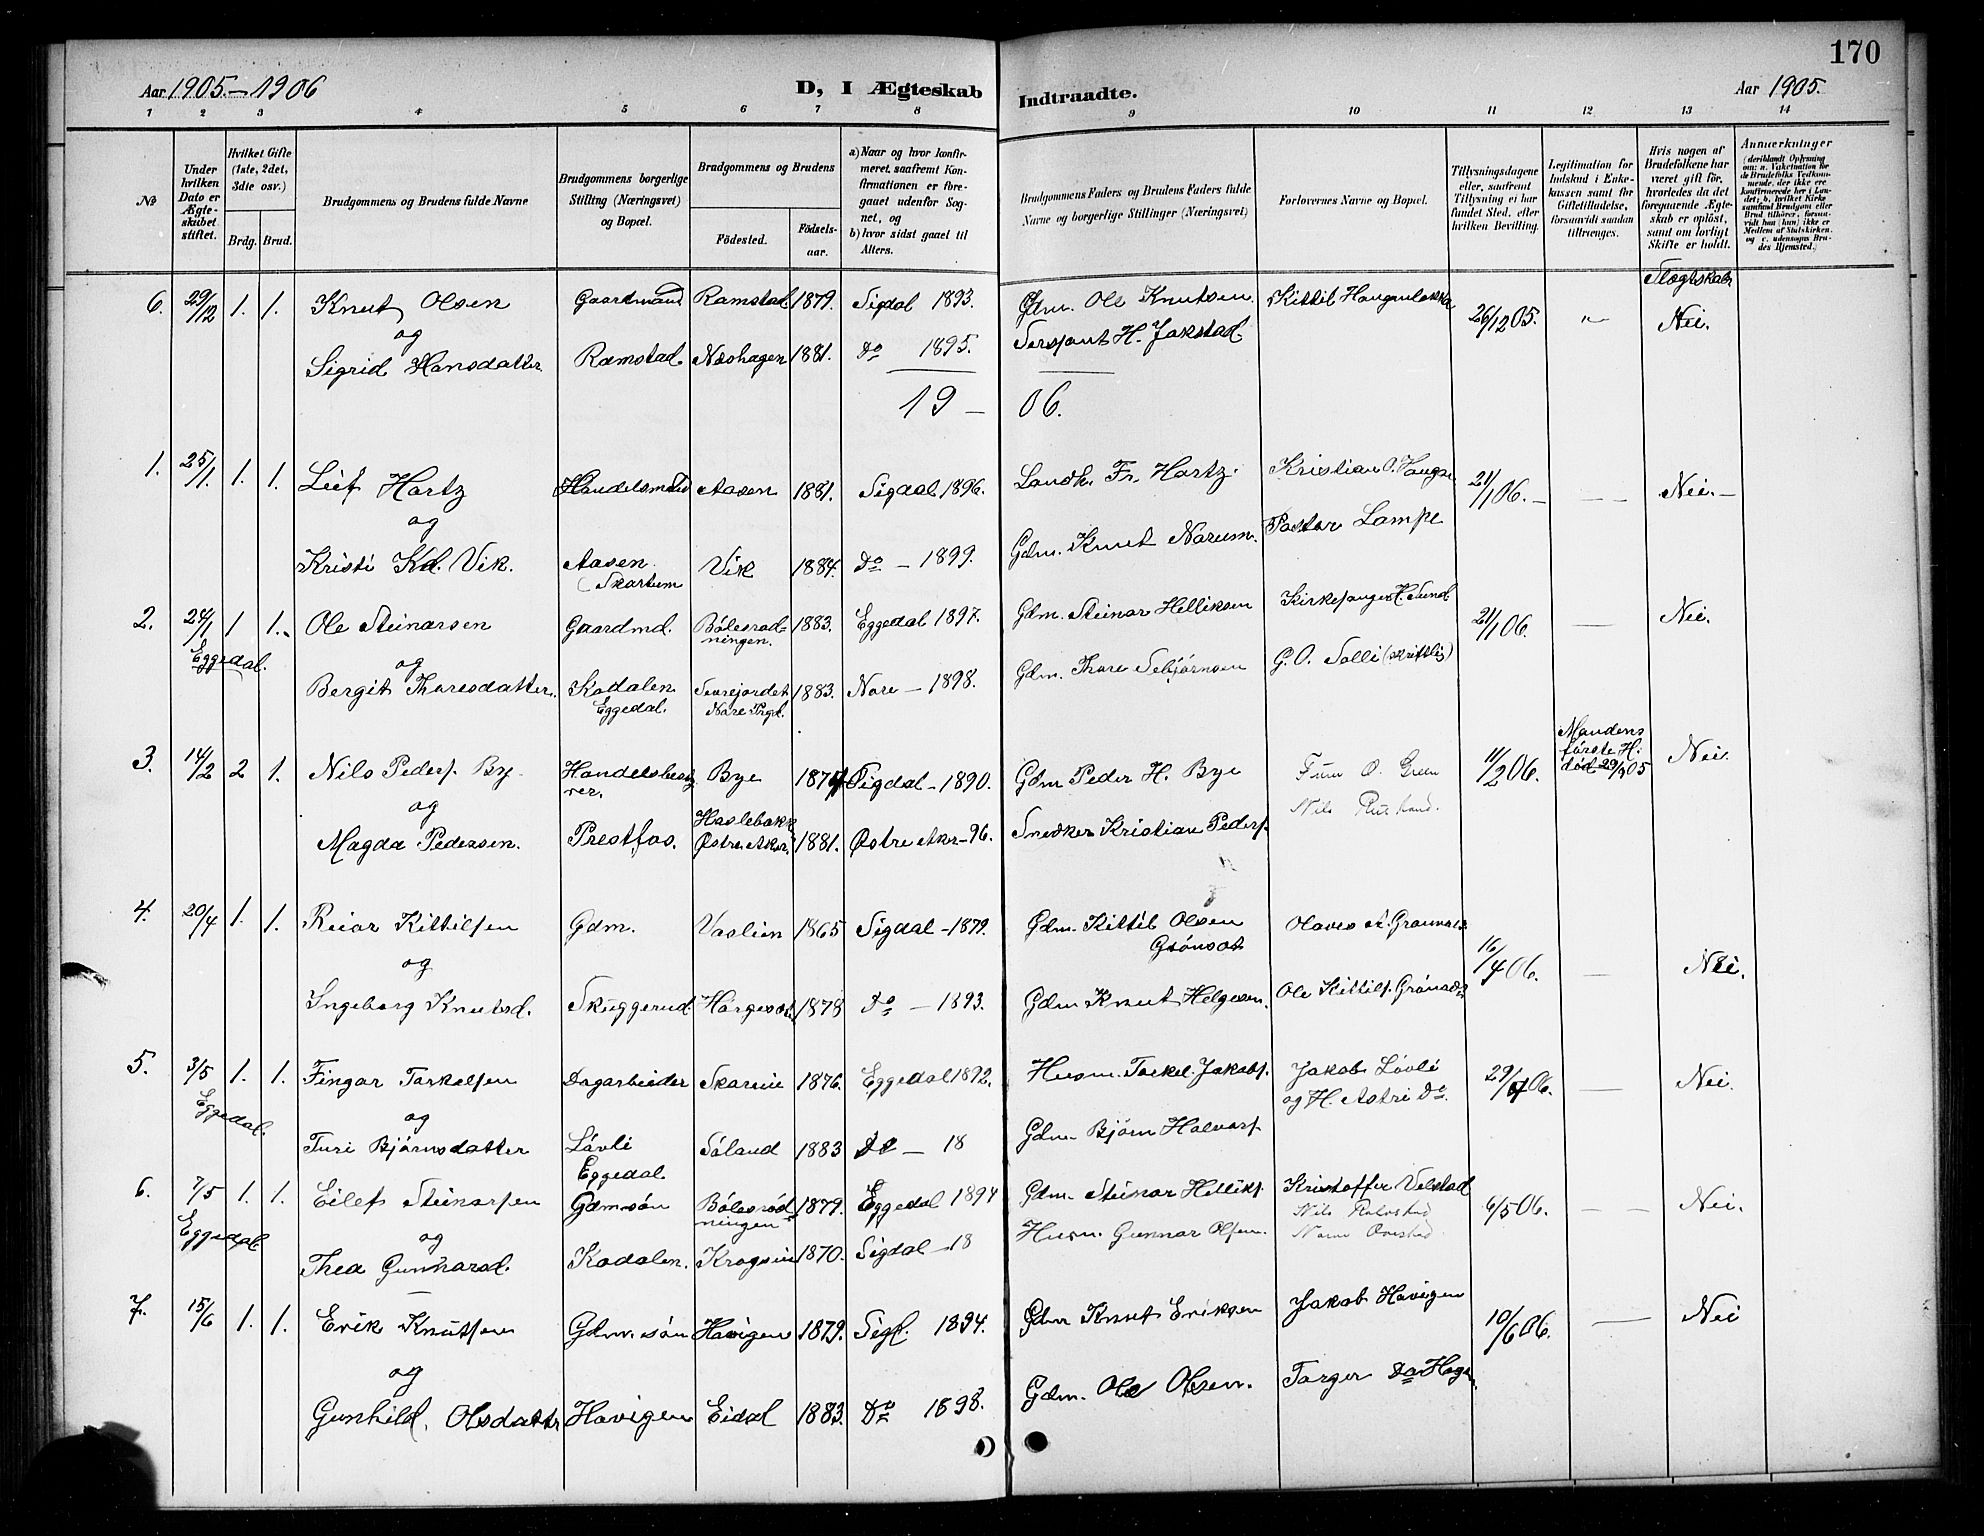 170
Aar 1905-1906 D, I Ægteskab Indtraadte. Aar 1905.
1 2 3 4 5 6 7 8 9 10 11 12 13 14
№
Under hvilken Dato er Ægteskabet stiftet.
Hvilket Gifte (1ste, 2det, 3die osv.)
Brdg. Brud.
Brudgommens og Brudens fulde Navne
Brudgommens borgerlige Stilling (Næringsvei) og Bopæl.
Brudgommens og Brudens
Fødested.
Fødselsaar.
a) Naar og hvor konfirmeret, saafremt Konfirmationen er foregaaet udenfor Sognet, og
b) hvor sidst gaaet til Alters.
Brudgommens Faders og Brudens Faders fulde Navne og borgerlige Stillinger (Næringsvei)
Forlovernes Navne og Bopæl.
Tillysningsdagene eller, saafremt Tillysning ei har fundet Sted, efter hvilken Bevilling.
Legitimation for Indskud i Enkekassen samt for Giftetilladelse, forsaavidt saadan tiltrænges.
Hvis nogen af Brudefolkene har været gift før, hvorledes da det foregaaende Ægteskab er opløst, samt om lovligt Skifte er holdt.
Anmerkninger
(deriblandt Oplysning om: a. Vakcination for de Brudefolks Vedkommende, der ikke ere konfirmerede her i Landet; b. hvilket Kirkesamfund Brudgom eller Brud tilhører, forsaavidt han (hun) ikke er Medlem af Statskirken, og c. udensogns Brudes Hjemsted.)
Slægtskab
6. 29/12 1. 1. Knut Olsen Gaardmand Ramstad 1879. Sigdal 1893. Gdm. Ole Knutsen Kittil Haugenbakke 26/12 05. " Nei.
og
Sigrid Hansdatter Ramstad Næshagen 1881. Do 1895. Sersjant H. Jakstad
19 - 06.
1. 25/1 1. 1. Leif Hartz Handelsmand Aasen 1881. Sigdal 1896. Landh. Fr. Hartz. Kristian O. Hauge 21/1 06. - Nei. -
og
Kristi Kd. Vik. Aasen Vik 1884. Do - 1899. Gdm. Knut Narum. Pastor Lampe
Skartum
2. 24/1 1 1. Ole Steinarsen Gaardmd. Bölesrudningen. 1883. Eggedal 1897. Gdm. Steinar Helliksen Kirkesanger H. Sund 21/1 06. - Nei.
Eggedal.
og
Bergit Thoresdatter. Kodalen Eggedal. Norejordet Nore Prgd. 1883. Nore - 1898. Gdm. Thore Sebjørnsen G. O. Solli (skriftlig)
3. 14/2 2 1. Nils Peders. Bye Handelsbestyrer. Bye 1874 Sigdal - 1890. Gdm Peder H. Bye O. Green 11/2 06. Mandens første H. død 29/ 05 Nei.
og Nils
Magda Pedersen. Prestfos. Haslebakk Østre Aker. 1881. Østre Aker - 96. Snedker Kristian Peders.
4. 20/4 1. 1. Reiar Kittilsen Gdm. Vaslien 1865 Sigdal - 1879. Gdm. Kittil Olsen Olaves A. Grønnæs 16/4 06. - Nei.
Grønset
og
Ingeborg Knutsd. Skuggerud. 1878 Do - 1893. Gdm Knut Helgesen. Ole Kittils. Grønset
5. 3/5 1. 1. Fingar Torkelsen Dagarbeider 1876. Eggedal 1892. Husm. Torkel Jakobs. Jakob Løvli 29/4 06. - Nei
Eggedal. og H. Astri Do.
og
Turi Bjørnsdatter Løvli Eggedal. Søland 1883 Do - 18 Gdm. Bjørn Halvors.
6. 7/5 1. 1. Eilef Steinarsen Gdm.søn Bölesrødningen 1879. Eggedal 1894 Gdm. Steinar Helliks. Kristoffer Velstad 6/5 06. - - Nei.
Eggedal Nils
og
Thea Gunnarsd. Kodalen. Krogvin 1870. Sigdal - 18 Husm. Gunnar Olsen.
7. 15/6 1. 1. Erik Knutsen Gdm. søn Havigen 1879. Sigl. 1894. Gdm Knut Eriksen Jakob Havigen 10/6 06. - Nei
og
Gunhild Olsdatter Havigen Eidal 1883. Do 1898. Gdm. Ole Olsen. Torger Do